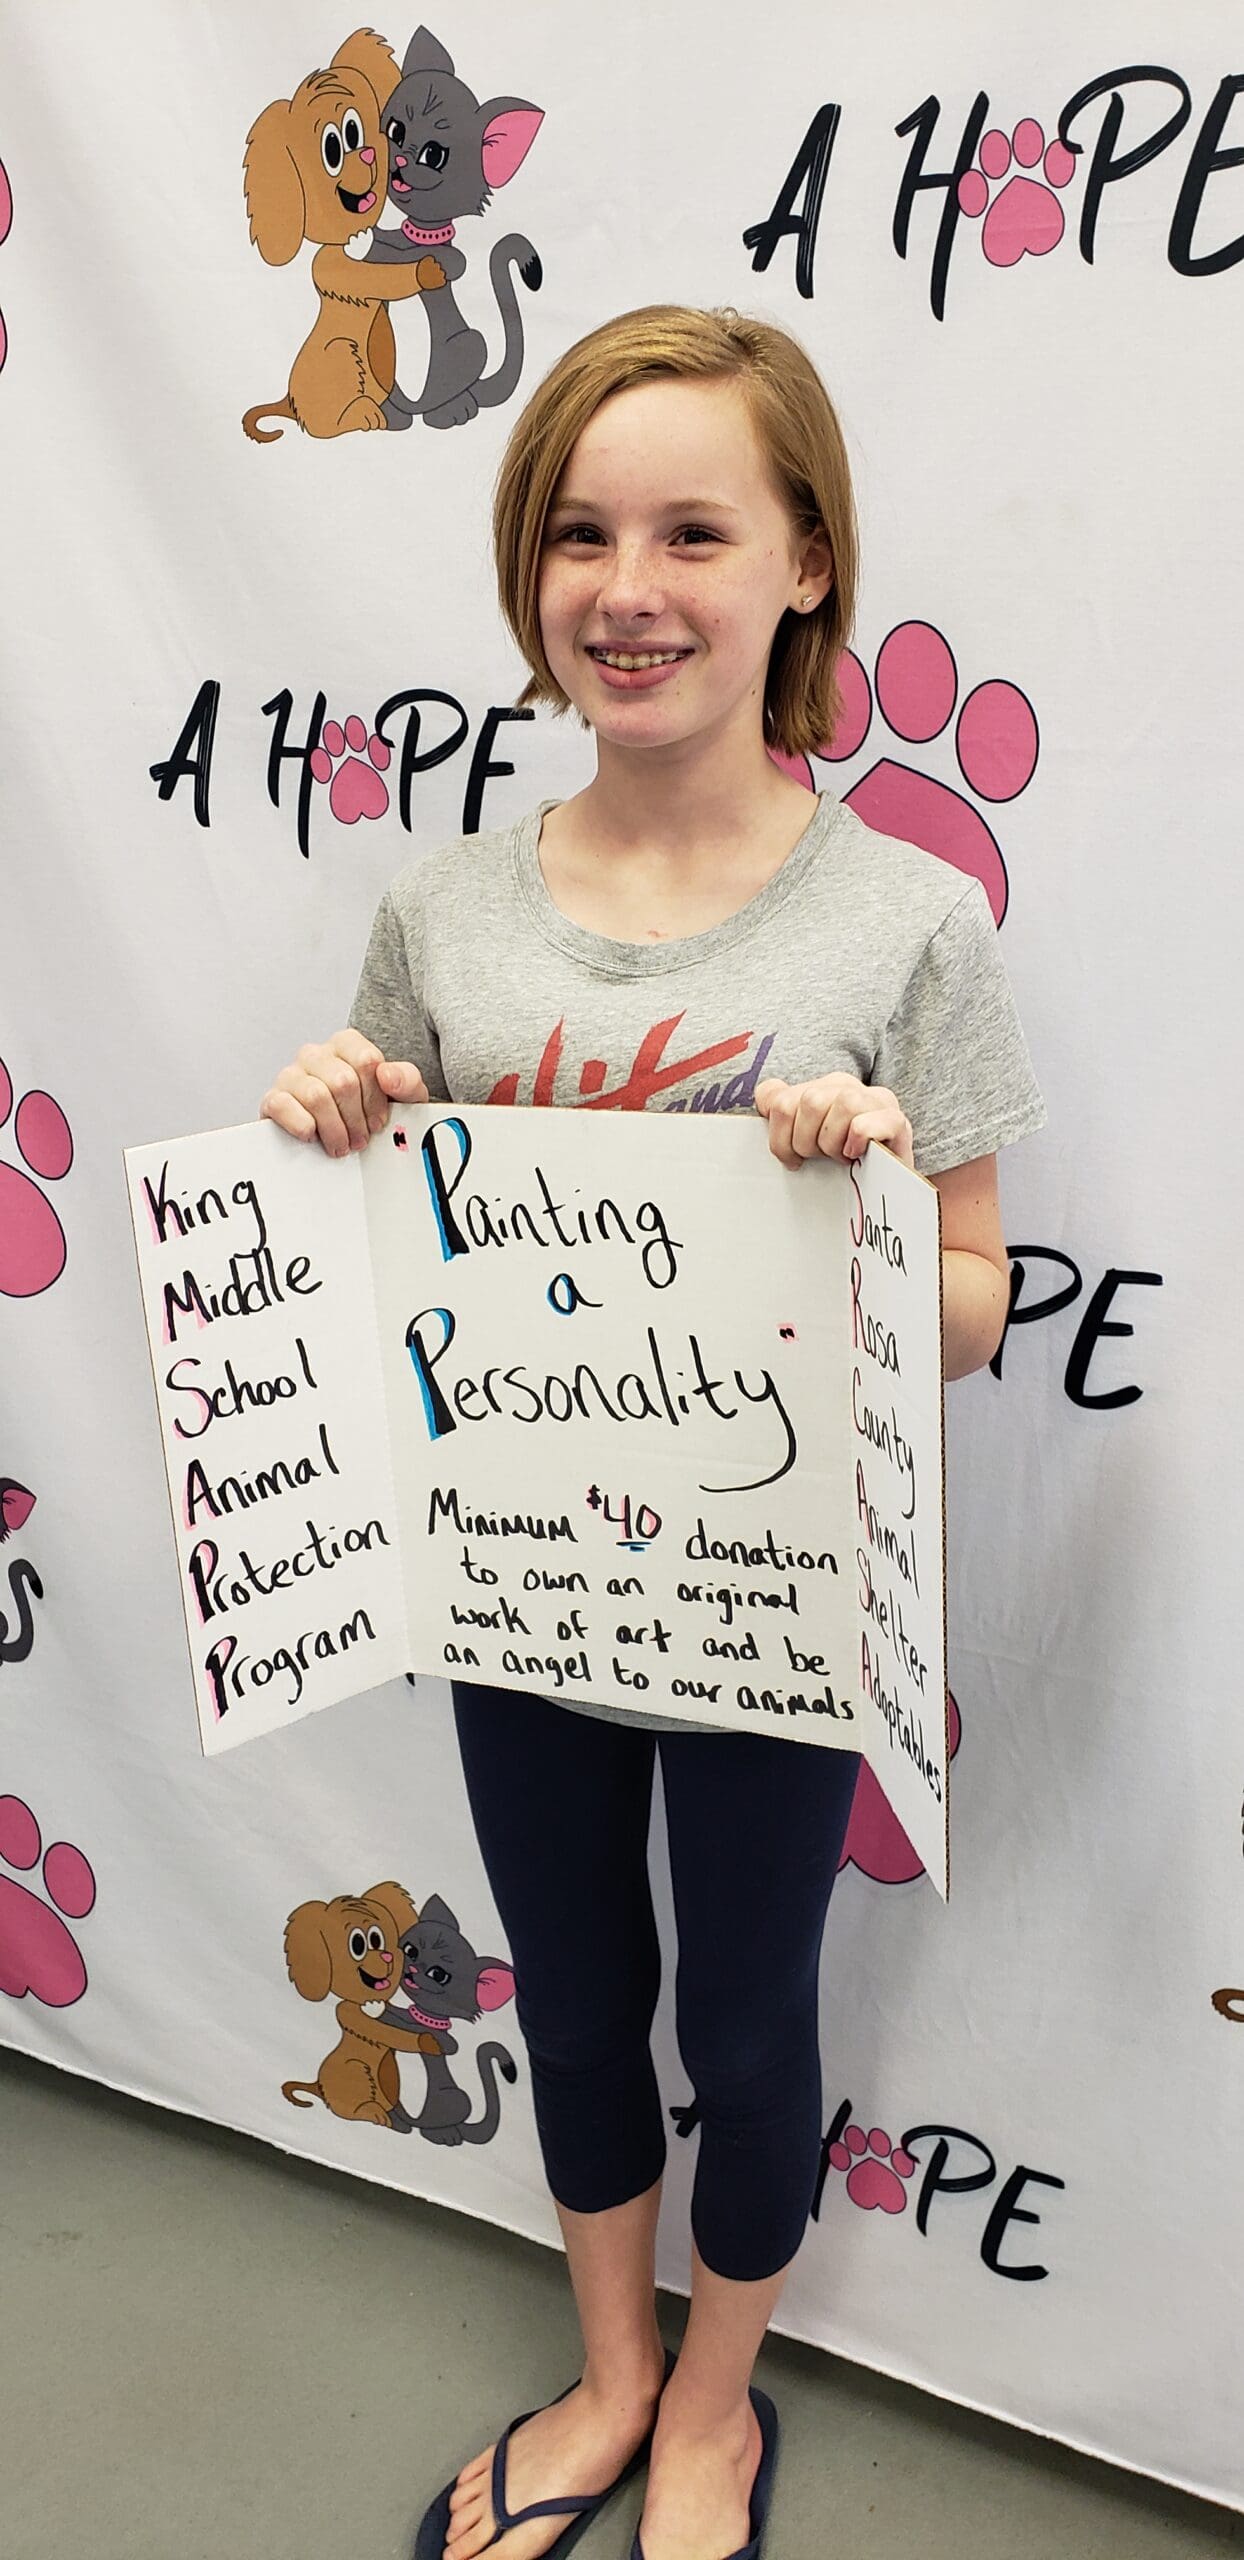 A HOPE
A HOPE
King
Middle
School
Animal
Protection
Program
"Painting
a
Personality"
Minimum $40 donation
to own an original
work of art and be
an angel to our animals
Santa
Rosa
County
Animal
Shelter
Adoptables
and
OPE
HOPE